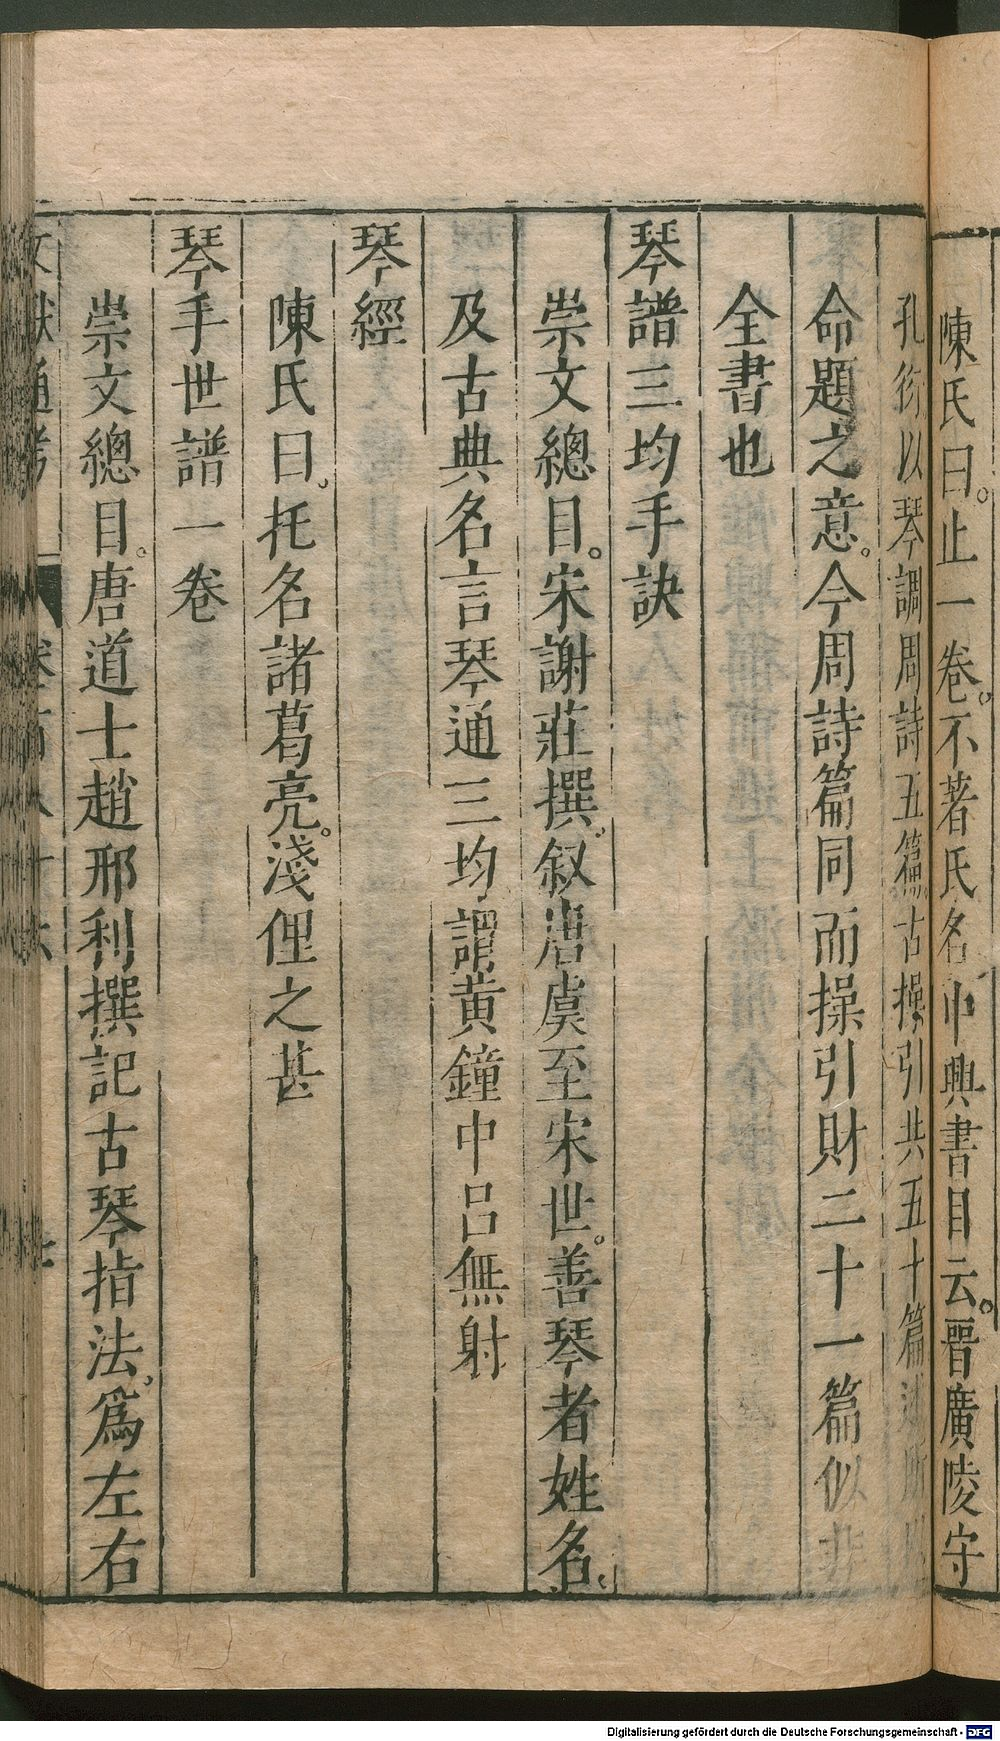 陳氏曰止一卷不著氏名中興書目云晉廣陵守
孔衍以琴調周詩五篇古操引共五十篇述所以
命題之意今周詩篇同而操引財二十一篇似非
全書也
琴譜三均手訣
崇文總目宋謝莊撰叙唐虞至宋世善琴者姓名
及古典名言琴通三均謂黄鐘中吕無射
琴經
陳氏曰托名諸葛亮淺俚之甚
琴手世譜一卷
崇文總目唐道士趙邢利撰記古琴指法爲左右
文獻通考
Digitalisierung gefördert durch die Deutsche Forschungsgemeinschaft - DFG